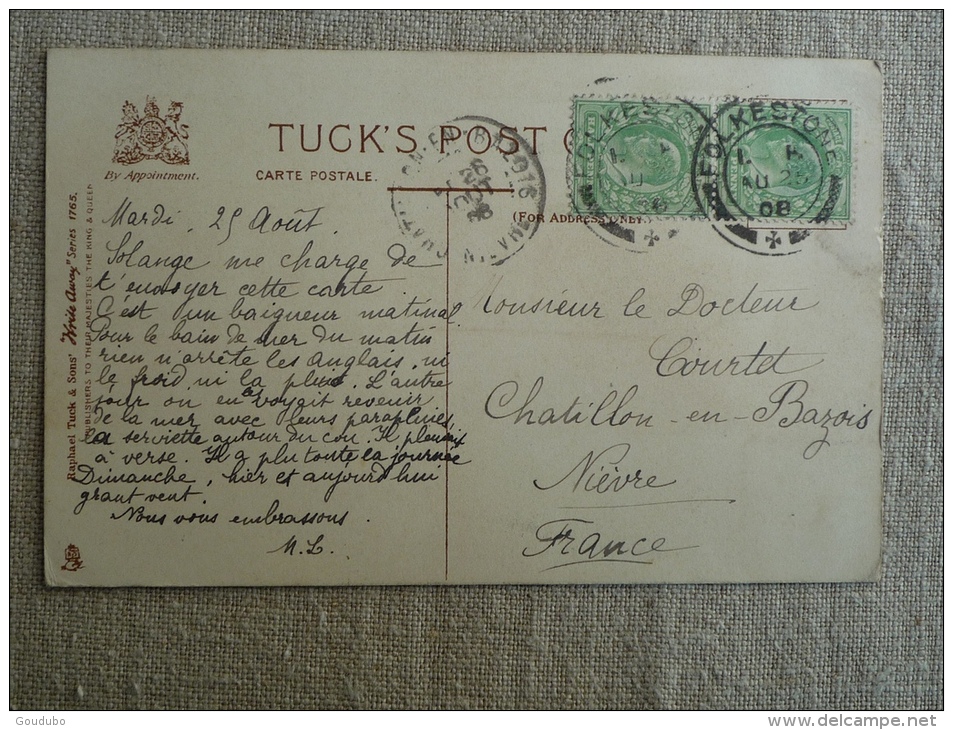 By Appointment.
TUCK'S POST C
CARTE POSTALE.
(FOR ADDRESS ONLY
FOLKESTONE
AU 25
08
FOLKESTONE
AU 25
08
Raphael Tuck & Sons' "Write Away" Series 1765.
PUBLISHERS TO THEIR MAJESTIES THE KING & QUEEN
Mardi 25 Août.
Solange me charge de
t'envoyer cette carte.
C'est un baigneur matinal.
Pour le bain de mer du matin
rien n'arrête les anglais, ni
le froid ni la pluie. L'autre
jour on en voyait revenir
de la mer avec leurs parapluies,
la serviette autour du cou. Il pleuvait
à verse. Il a plu toute la journée
Dimanche, hier et aujourd'hui
grant vent.
Nous vous embrassons.
M.L.
Monsieur le Docteur
Courtet
Chatillon-en-Bazois
Nièvre
France
Goudubo
www.delcampe.net